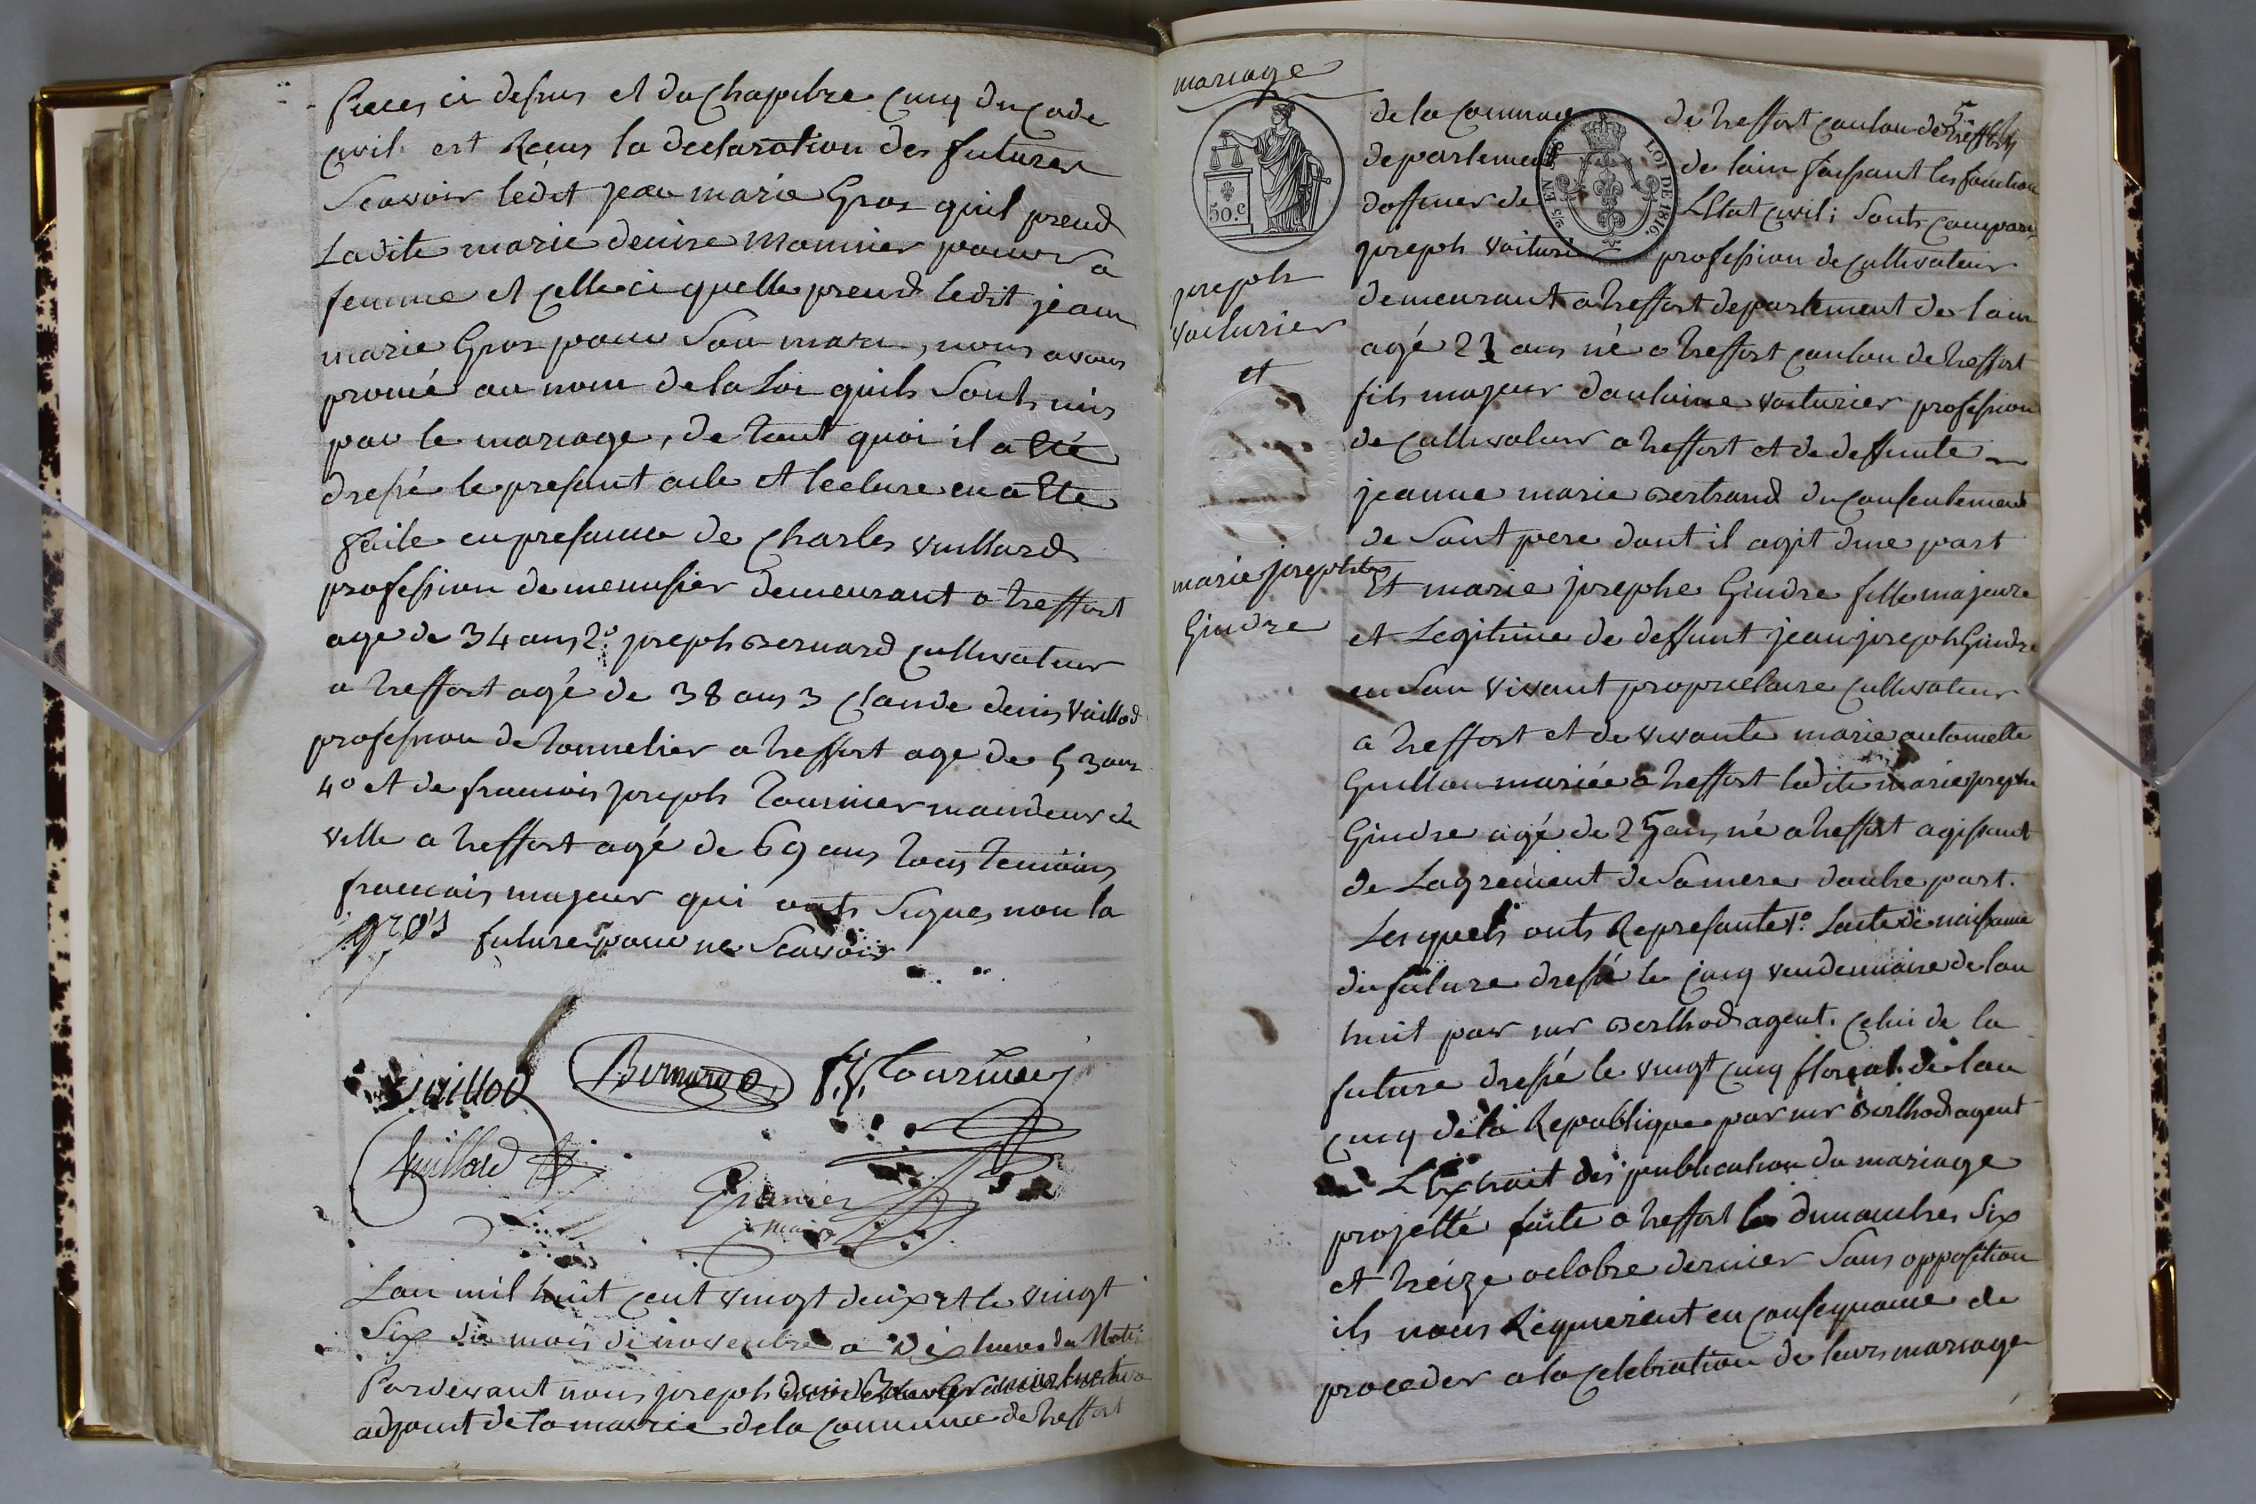 Pieces ci dessus et du Chapitre cinq du Code
civil est Reçus la declaration des futures
Scavoir ledit jean marie Gros quil prend
Ladite marie denise Monnier pour sa
femme et celle ci quelle prend ledit jean
marie Gros pour Son mari, nous avons
pronné au nom de la Loi quils Sonts unis
par le mariage, de tout quoi il a été
dressé le present acte et lecture en a été
faite en presance de Charles vuillard
profession de menusier demeurant a treffort
age de 34 ans 2° joseph Bernard cultivateur
a treffort agé de 38 ans 3 Claude denis Vuillod
profession de tonnelier a treffort age de 53 ans
4° et de francois joseph tournier mandeur de
ville a treffort agé de 69 ans tous temoins
francais majeur qui onts Signes non la
gros future pour ne Scavoir
Vuillod Bernard f.j. tournier
Vuillard Granier
maire
Lan mil huit cent vingt deux et le vingt
Six du mois de novembre a dix heures du Matin
Pardevant nous joseph
adjoint de la mairie de la commune de treffort
mariage
5
de la commune de treffort canton de treffort
departement de lain faissant les fonction
dofficier de LEtat civil; Sonts comparu
50.c
LOI DE 1816.
joseph voiturier profession de cultivateur
demeurant a treffort departement de lain
agé 23 ans né a treffort canton de treffort
fils majeur dantoine voiturier profession
de cultivateur a treffort et de deffunte
jeanne marie Bertrand du consentement
de Sont pere dont il agit dune part
Et marie josephe Gindre fille majeure
et Legitime de deffunt jean joseph Gindre
en Son vivant proprietaire cultivateur
a treffort et de vivante marie antoinette
Guillon mariée a treffort ladite marie josephe
Gindre agé de 25 ans né a treffort agissant
de Lagrement de Sa mere dautre part.
Lesquels onts Represanté 1° Lacte de naissance
du future dressé le cinq vendemiaire de lan
huit par mr Berthod agent. Celui de la
future dressé le vingt cinq floreal de lan
cinq de la Republique par mr Berthod agent
LExtrait des publication du mariage
projetté faite a treffort les dimanches Six
et treize octobre dernier Sans opposition
ils nous Requierent en consequance de
proceder a la celebration de leurs mariage
joseph
voiturier
et
marie josephte
Gindre